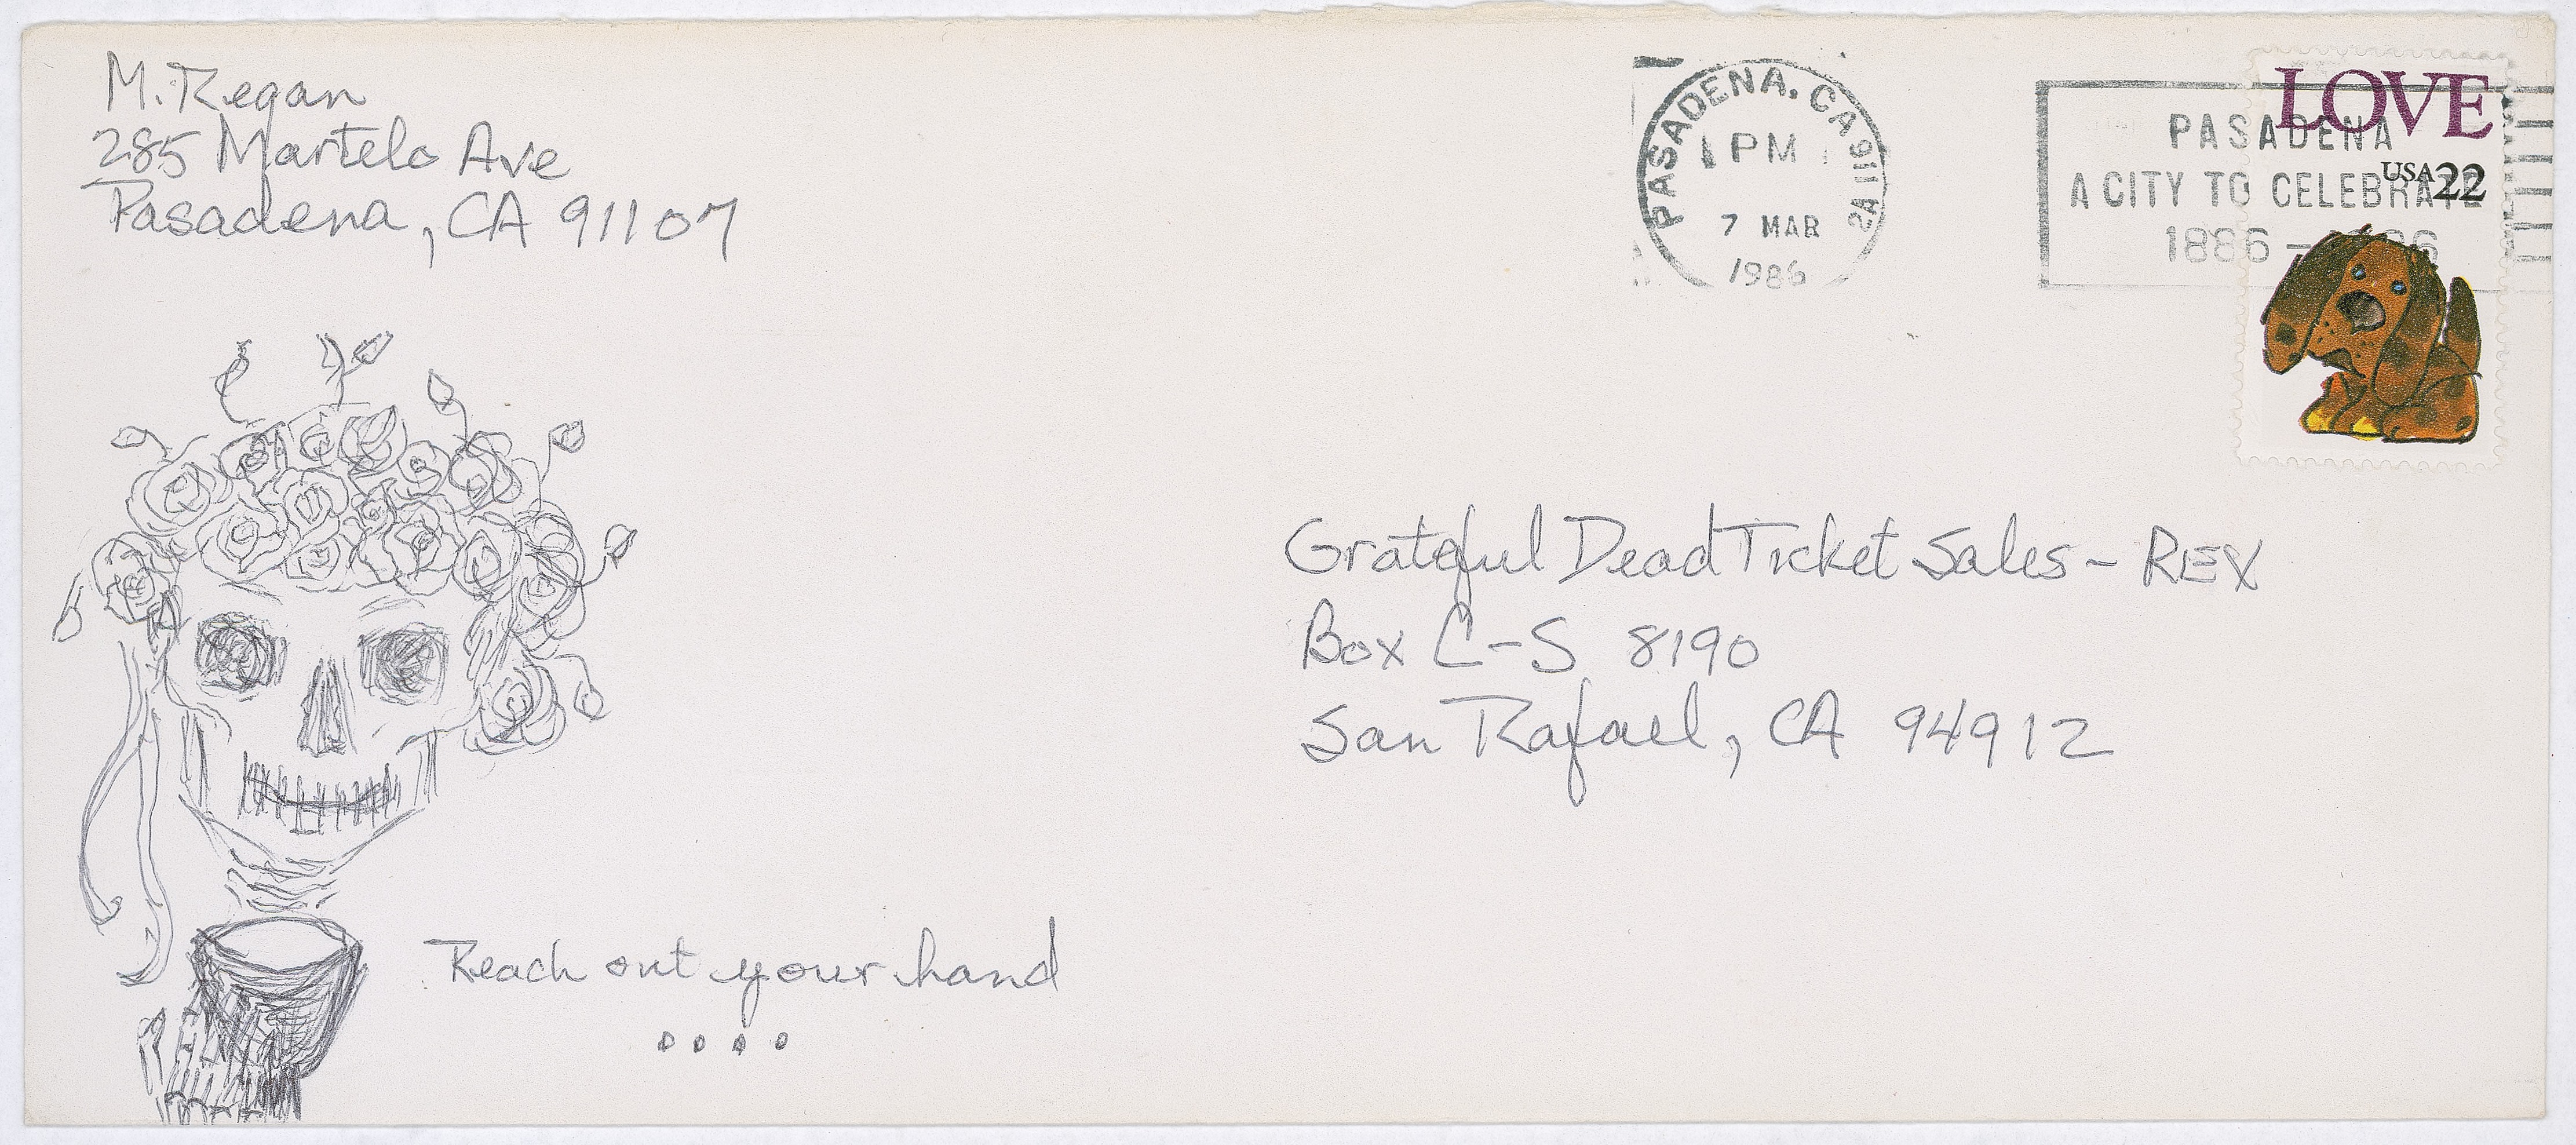 M. Regan
285 Martelo Ave
Pasadena, CA 91107
PASADENA, CA 911
1 PM
7 MAR
1986
PASADENA
A CITY TO CELEBRATE
1886 - 1986
LOVE
USA 22
Grateful Dead Ticket Sales - REX
Box C-S 8190
San Rafael, CA 94912
Reach out your hand
. . . .